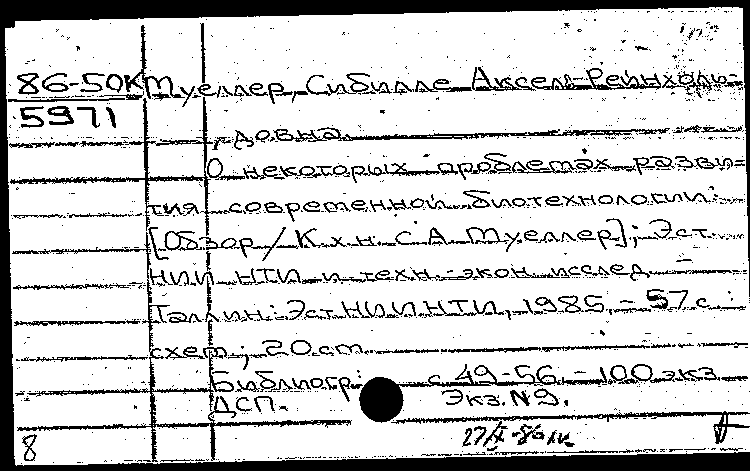 86-50К Муеллер, Сибилле Аксель-Рейнхоль-
5971
довна.
О некоторых проблемах разви-
тия современной биотехнологии:
[Обзор / К.х.н. С.А. Муеллер]; Эст.
НИИ НТИ и техн.-экон. исслед. –
Таллин: Эст.НИИНТИ, 1985. – 57 с.:
схем.; 20 см.
Библиогр.: с. 49-56. – 100 экз.
ДСП. Экз. №9.
8